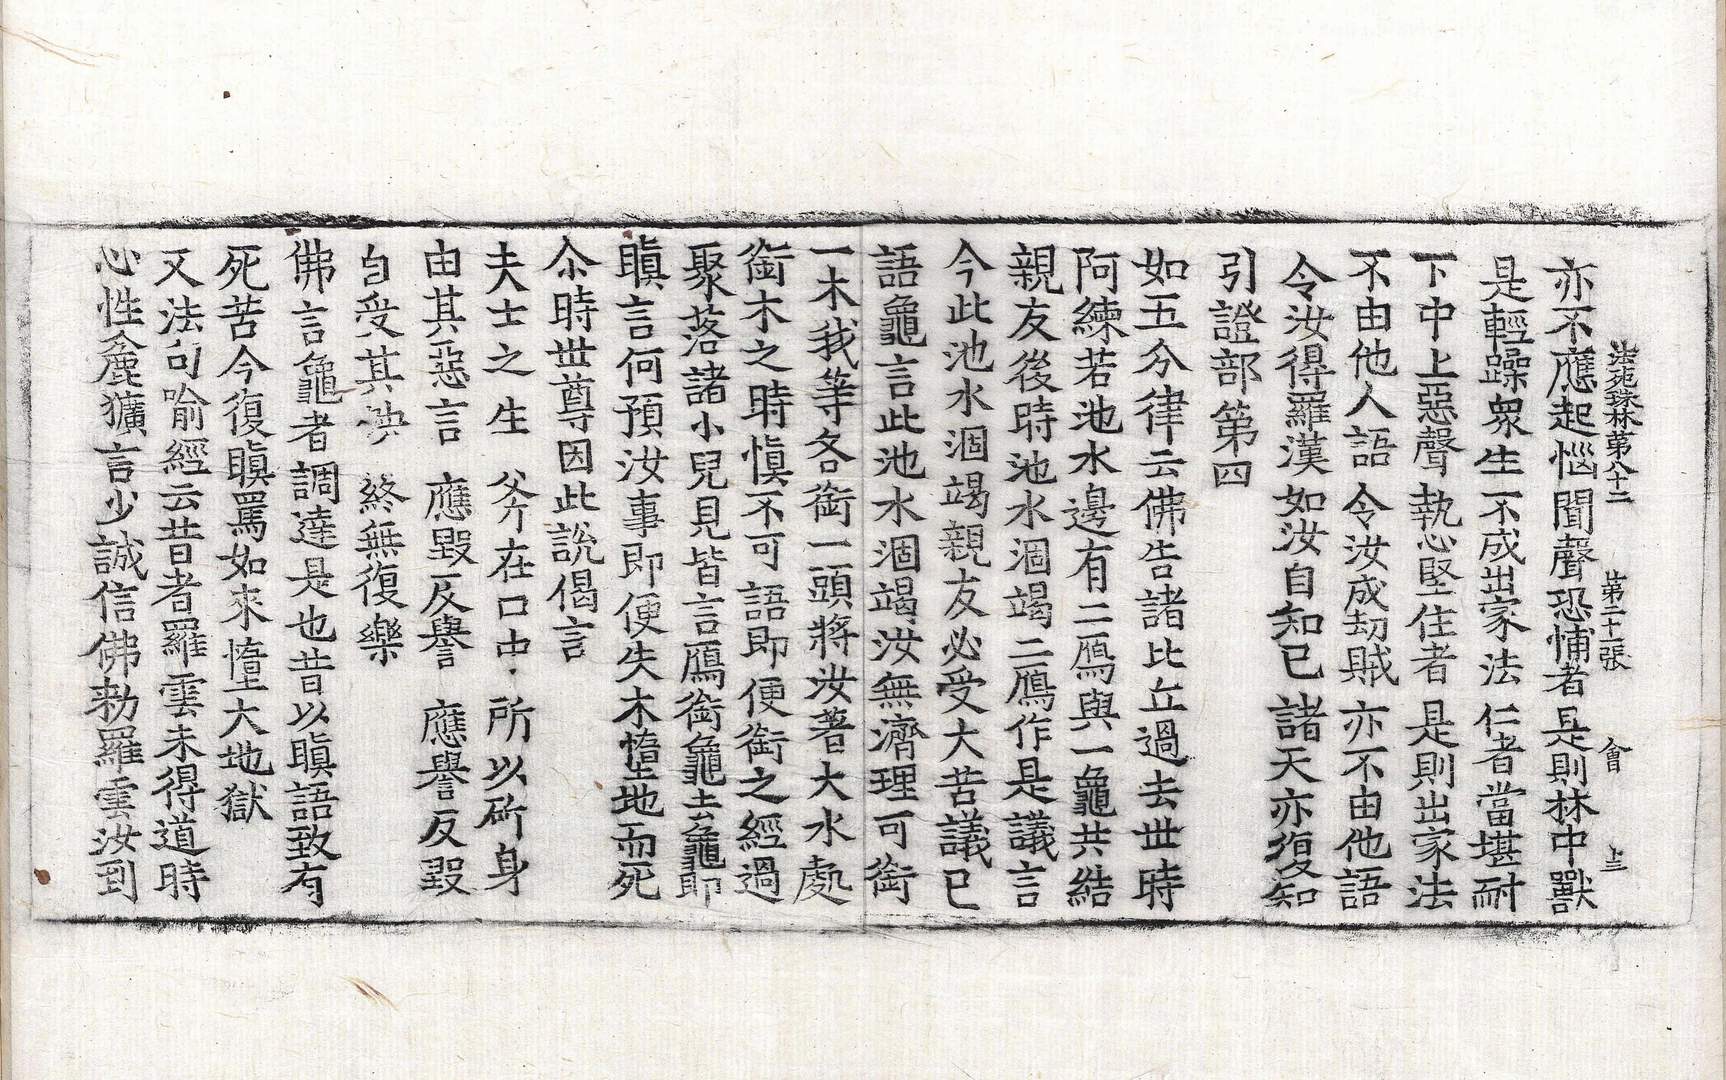 法苑珠林第八十二 第二十張 會
亦不應起惱聞聲恐怖者是則林中獸
是輕躁衆生不成出家法仁者當堪耐
下中上惡聲執心堅住者是則出家法
不由他人語令汝成劫賊亦不由他語
令汝得羅漢如汝自知已諸天亦復知
引證部第四
如五分律云佛告諸比丘過去世時
阿練若池水邊有二鴈與一龜共結
親友後時池水涸竭二鴈作是議言
今此池水涸竭親友必受大苦議已
語龜言此池水涸竭汝無濟理可銜
一木我等各銜一頭將汝著大水處
銜木之時慎不可語即便銜之經過
聚落諸小兒見皆言鴈銜龜去龜即
瞋言何預汝事即便失木墮地而死
尒時世尊因此說偈言
夫士之生 斧在口中 所以斫身
由其惡言 應毀反譽 應譽反毀
自受其殃 終無復樂
佛言龜者調達是也昔以瞋語致有
死苦今復瞋罵如來墮大地獄
又法句喻經云昔者羅雲未得道時
心性麁獷言少誠信佛勑羅雲汝到